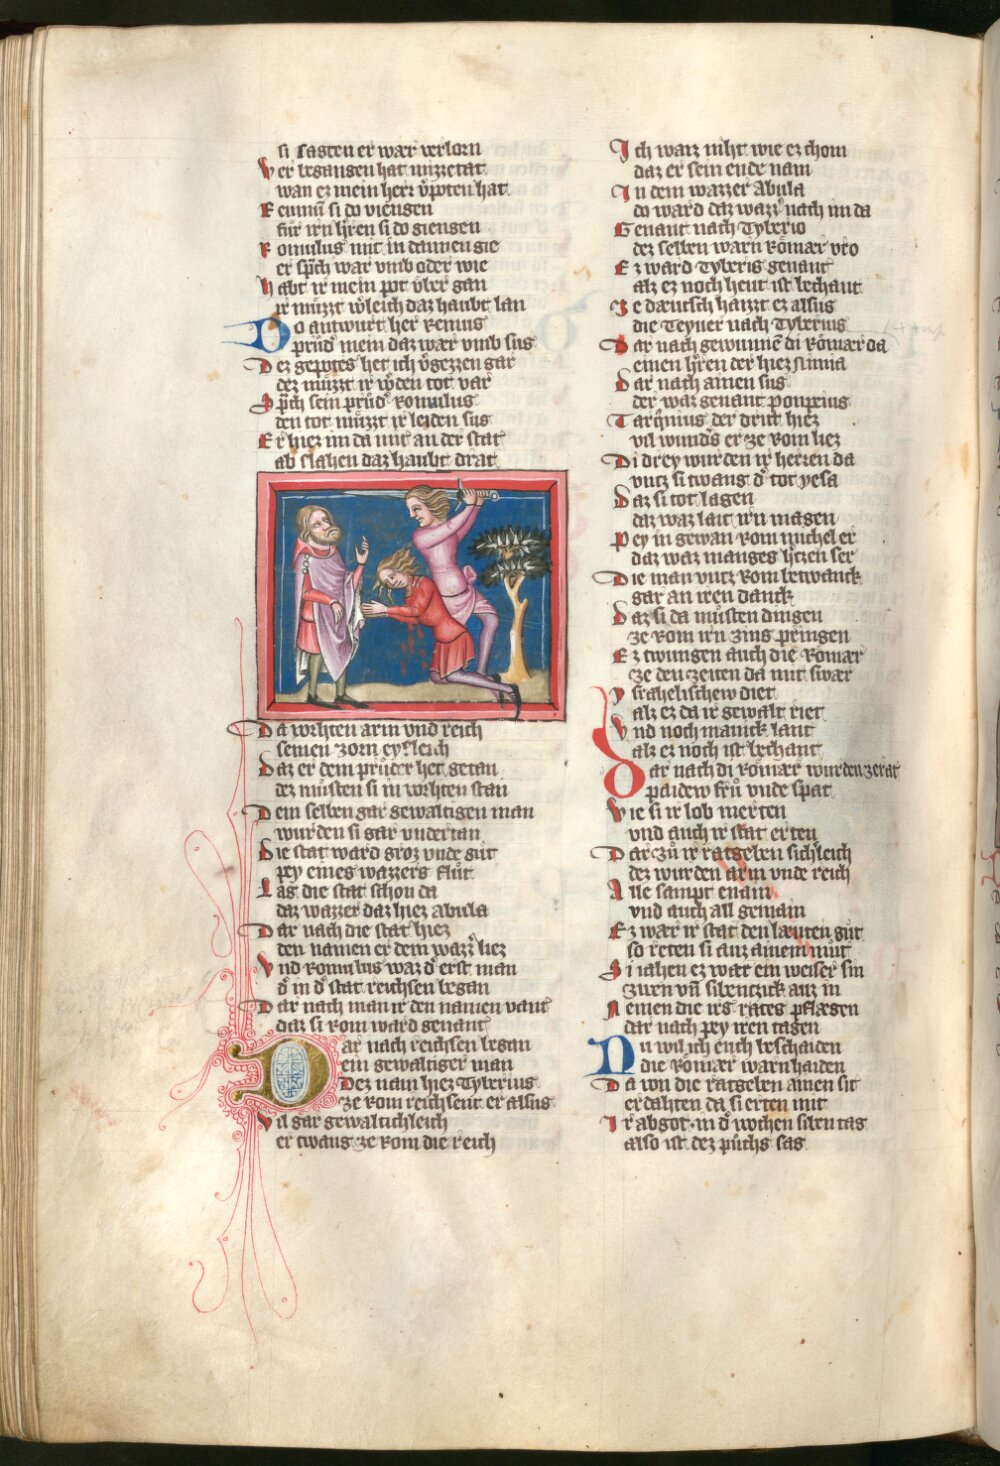 si sagten er wær verlorn
Wer begangen hat missetat
wan ez mein herr v̓poten hat
Remū si do viengen
fur irn h̓ren si do giengen
Romulus mit in dannen gie
er sp̃ch war vmb oder wie
Habt ir mein pot vber gan
ir muͤzzt w̓leich daz haubt lan
Do antwurt her Remus
pruͤd̓ mein daz wær vmb sus
Dez gepotes het ich v̓gezzen gar
dez muͤzzt ir w̓den tot var
Sp̃ch sein pruͤd̓ Romulus
den tot muͤzzt ir leiden sus
Er hiez im da mit an der stat
ab slahen daz haubt drat
Da vorhten arm vnd reich
seinen zorn eysleich
Daz er dem pruͤder het getan
dez muͤsten si in vorhten stan
Dem selben gar gewaltigen man
wurden si gar vndertan
Die stat ward groz vnde guͤt
pey eines wazzers fluͤt
Lag die stat schon da
daz wazzer daz hiez Abula
Dar nach die stat hiez
den namen er dem wazz̓ liez
Vnd Romulus waz d̓ erst man
d̓ in d̓ stat reichsen began
Dar nach man ir den namen vant
daz si Rom ward genant
Dar nach reichsen began
ein gewaltiger man
Dez nam hiez Tyberius
ze Rom reichsent er alsus
Vil gar gewaltichleich
er twang ze Rom die reich
Ich waiz niht wie ez chom
daz er sein ende nam
In dem wazzer Abula
do ward daz wazz̓ nach im da
Genant nach Tyberio
dez selben warn Romær vro
Ez ward Tyberis genant
alz ez noch heut ist bechant
Ze dæutsch haizzt ez alsus
die Teyuer nach Tyberius
Dar nach gewunnē di Romær da
einen h̓ren der hiez Numa
Dar nach ainen sus
der waz genant Pompeius
Tarq̓nius der dritt hiez
vil wund̓s er ze Rom liez
Di drey wurden ir herren da
vntz si twang d̓ tot yesa
Daz si tot lagen
daz waz lait irn magen
Pey in gewan Rom michel er
daz waz manges h̓tzen ser
Die man vntz Rom betwanck
gar an iren danck
Daz si da muͤsten dingen
ze Rom irn zins pringen
Ez twungen auch die Romær
ze den zeiten da mit swær
Ysrahelischew diet
alz ez da ir gewalt riet
Vnd noch manick lant
alz ez noch ist bechant
Dar nach di Romær wurden ze rat
paidew fruͤ vnde spat
Wie si ir lob merten
vnd auch ir stat erten
Dar zuͦ ir ratgeben sichleich
dez wurden arm vnde reich
Alle sampt enain
vnd auch all gemain
Ez wær ir stat den læuten guͤt
so reten si auz ainem muͤt
Si iahen ez wær ein weiser sin
zwen vn̄ sibentzick auz in
Nemen die irs rates pflægen
dar nach pey iren tagen
Nu wil ich euch beschaiden
die Romær warn haiden
Da von die ratgeben ainen sit
erdahten da si erten mit
Ir abgot in d̓ wochen siben tag
also ist dez puͤchs sag